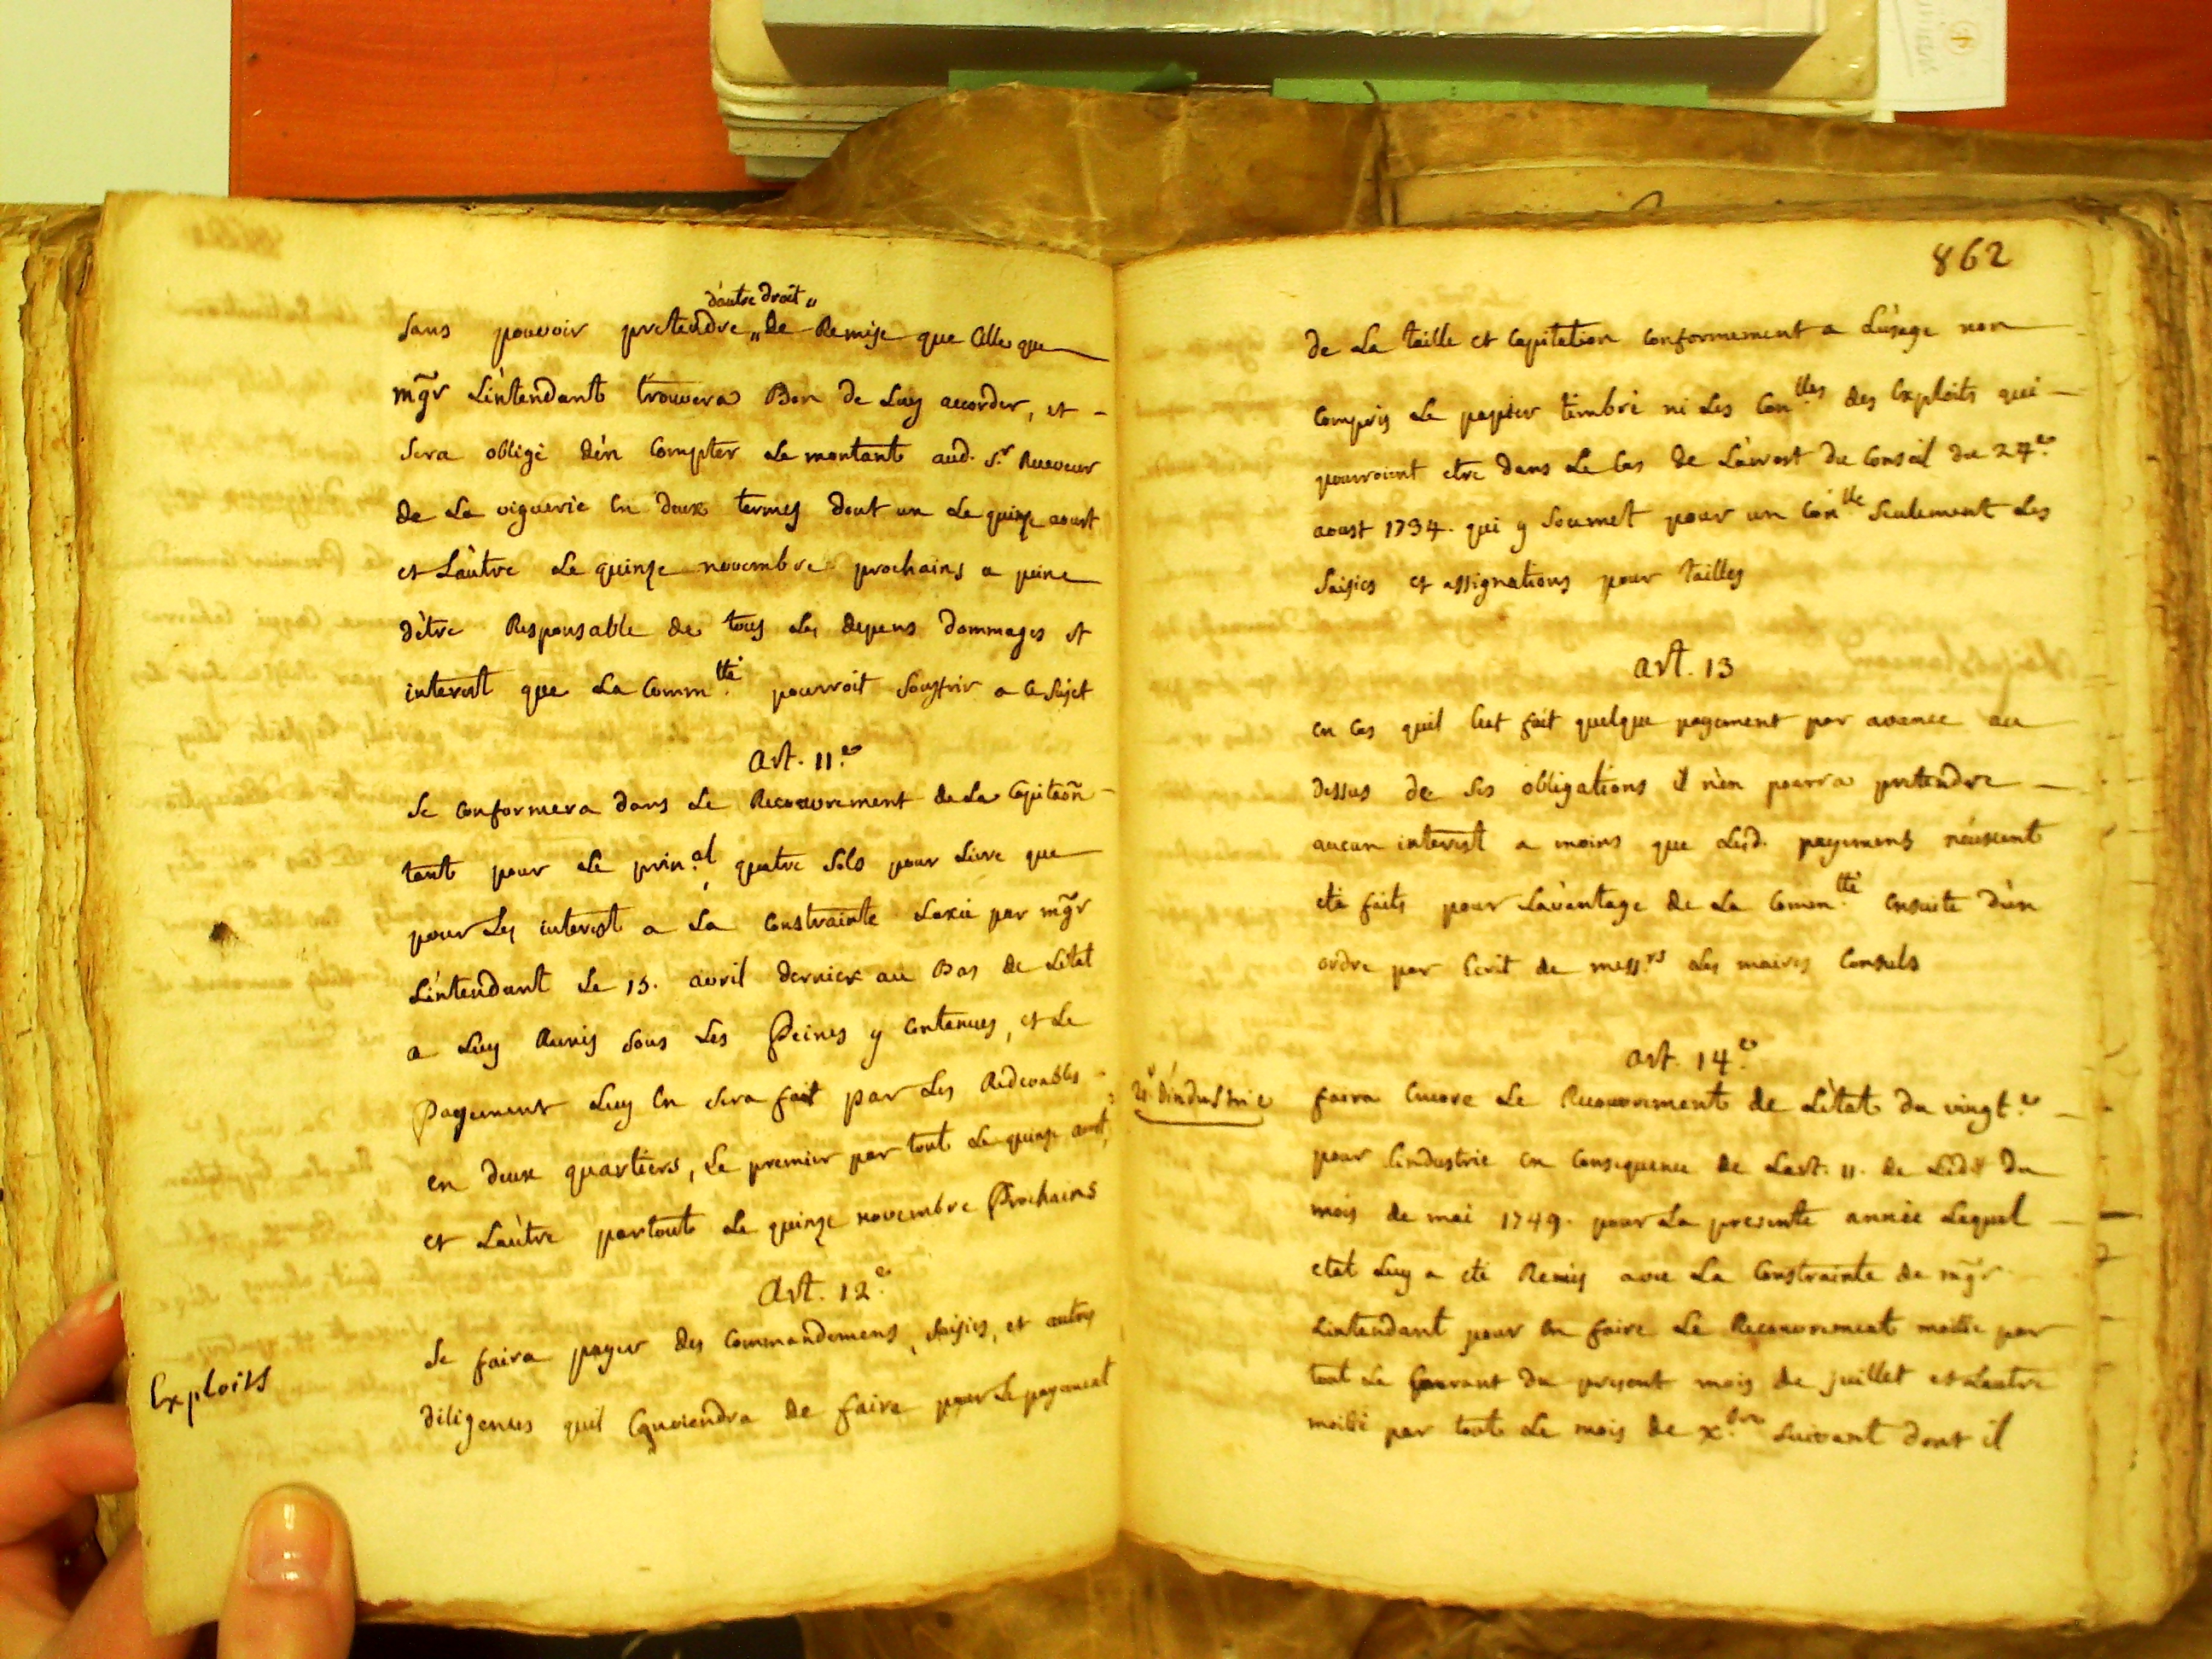 d'autre droit "
Sans pouvoir pretendre " de Remise que Celle que
mg̃r L'intendant trouvera Bon de Luy accorder, et -
Sera obligé d'en Compter Le montant aud. S.r Receveur
de La viguerie en deux termes dont un Le quinze aoust
et L'autre Le quinze novembre prochains a peine
d'être Responsable de tous Les depens dommages et
interest que La Comm.tté pourroit Souffrir a ce Sujet
Art. 11.e
Se Conformera dans Le Recouvrement de La Capitaõn -
tant pour Le prin.al, quatre Sols pour Livre que
pour Les interest a La Constrainte Laxée par mg̃r
L'intendant Le 15. avril dernier au Bas de L'état
a Luy Remis Sous Les Peines y Contenues, et Le
Payement Luy en Sera fait par Les Redevables -
en deux quartiers, Le premier par tout Le quinze aoust,
et L'autre partout Le quinze novembre Prochains
Art. 12.e
Exploits
Se faira payer des Commandemens, Saisies, et autres
diligences quil Conviendra de faire pour Le payement
862
de La taille et Capitation Conformement a L'usage non
Compris Le papier timbré ni Les Con.lles des Exploits qui -
pourroient etre dans Le Cas de L'arrest du Conseil du 24.e
aoust 1734. qui y Soumet pour un Con.lle Seulement Les
Saisies et assignations pour Tailles
art. 13
en Cas quil Eut fait quelque payement par avance au
dessus de Ses obligations il n'en pourra pretendre -
aucun interest a moins que Lesd. payemens n'eussent
eté faits pour L'avantage de La Comm.tté ensuite d'un
ordre par Ecrit de mess.rs Les maires Consuls
art. 14.e
20.e D'industrie
faira Encore Le Recouvrement de L'état du vingt.e -
pour L'industrie en Consequence de L'art. 11. de L'edit du
mois de mai 1749. pour La presente année Lequel -
etat Luy a eté Remis avec La Constrainte de mg̃r
L'intendant pour en faire Le Recouvrement moitié par
tout Le Courant du present mois de juillet et L'autre
moitié par tout Le mois de x.bre Suivant dont il